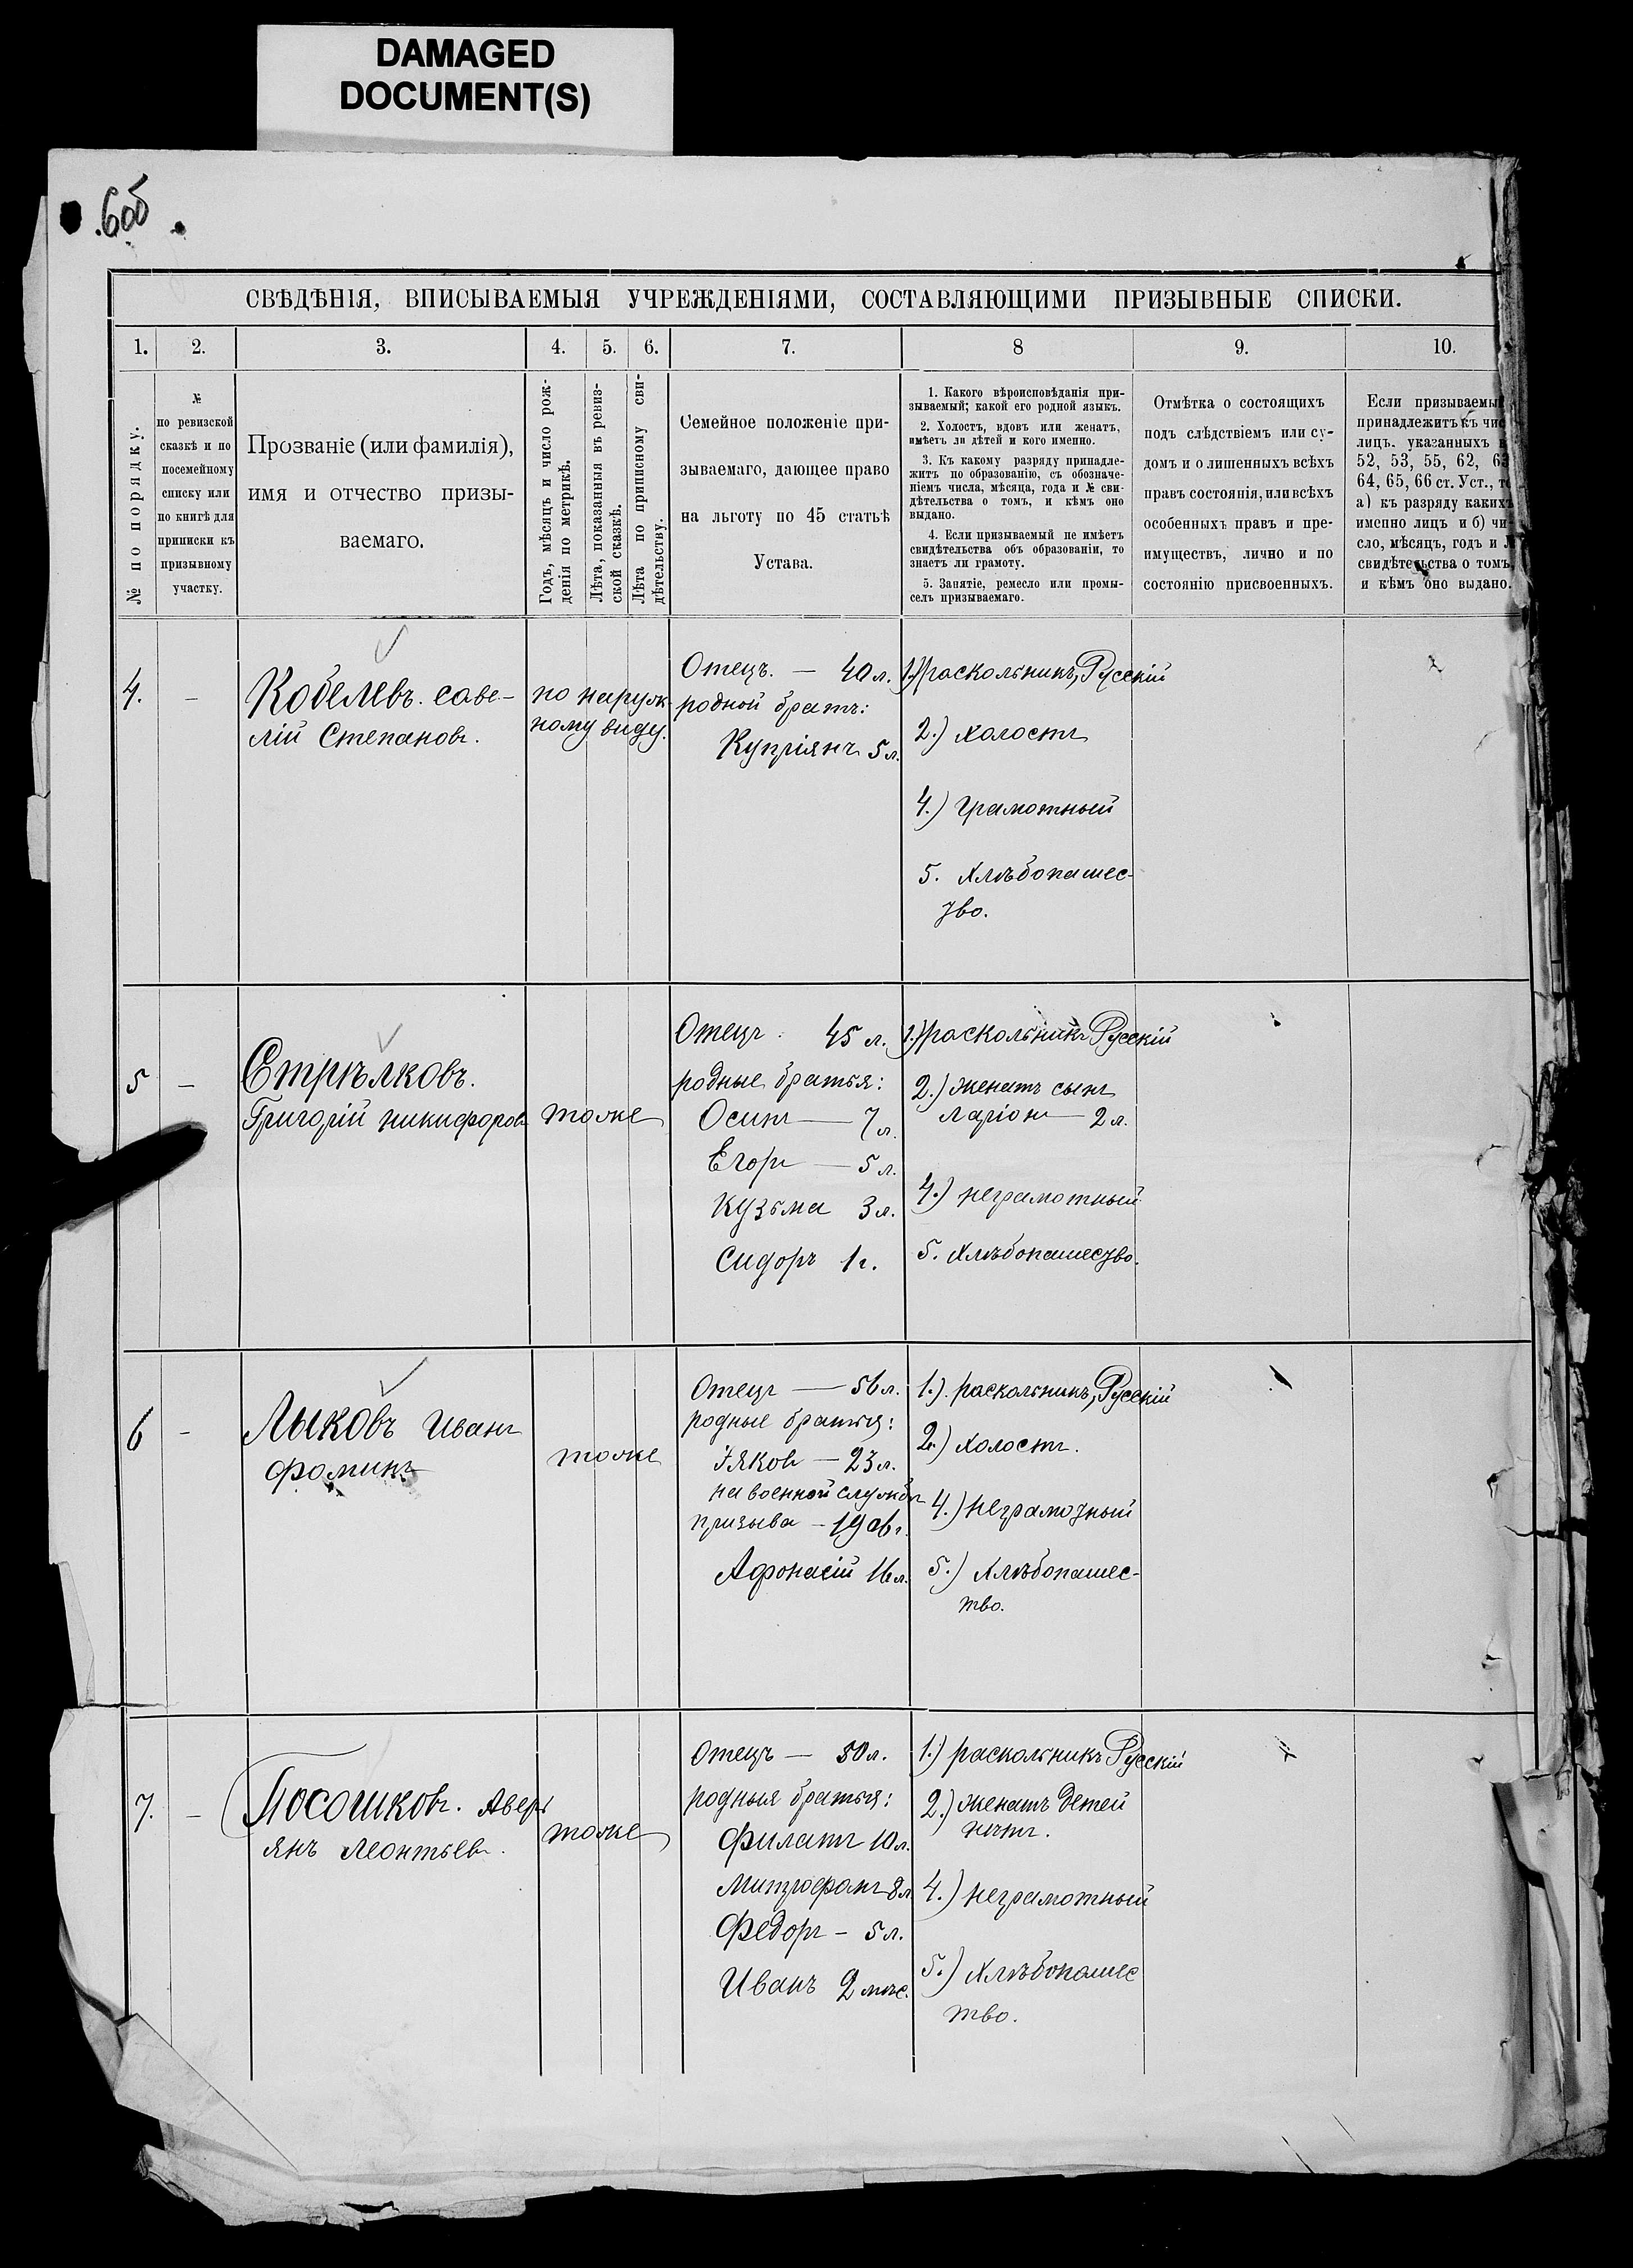 DAMAGED
DOCUMENT(S)
6об
СВѢДѢНІЯ, ВПИСЫВАЕМЫЯ УЧРЕЖДЕНІЯМИ, СОСТАВЛЯЮЩИМИ ПРИЗЫВНЫЕ СПИСКИ.
1. 2. 3. 4. 5. 6. 7. 8 9. 10.
№ по порядку.
№
по ревизской
сказкѣ и по
посемейному
списку или
по книгѣ для
приписки къ
призывному
участку.
Прозваніе (или фамилія),
имя и отчество призы-
ваемаго.
Годъ, мѣсяцъ и число рож-
денія по метрикѣ.
Лѣта, показанныя въ ревиз-
ской сказкѣ.
Лѣта по приписному сви-
дѣтельству.
Семейное положеніе при-
зываемаго, дающее право
на льготу по 45 статьѣ
Устава.
1. Какого вѣроисповѣданія при-
зываемый; какой его родной языкъ.
2. Холостъ, вдовъ или женатъ,
имѣетъ ли дѣтей и кого именно.
3. Къ какому разряду принадле-
житъ по образованію, съ обозначе-
ніемъ числа, мѣсяца, года и № сви-
дѣтельства о томъ, и кѣмъ оно
выдано.
4. Если призываемый не имѣетъ
свидѣтельства объ образованіи, то
знаетъ ли грамоту.
5. Занятіе, ремесло или промы-
селъ призываемаго.
Отмѣтка о состоящихъ
подъ слѣдствіемъ или су-
домъ и о лишенныхъ всѣхъ
правъ состоянія, или всѣхъ
особенныхъ правъ и пре-
имуществъ, лично и по
состоянію присвоенныхъ.
Если призываемый
принадлежитъ къ чис
лицъ, указанныхъ в
52, 53, 55, 62, 63
64, 65, 66 ст. Уст., то
а) къ разряду какихъ
именно лицъ и б) чи-
сло, мѣсяцъ, годъ и №
свидѣтельства о томъ,
и кѣмъ оно выдано.
4. –
Кобелевъ. саве-
лій Степановъ.
по наруж-
ному виду.
Отецъ. — 40 л.
родной братъ:
Купріянъ 5 л.
1.) раскольникъ, Русскій
2.) холостъ
4.) грамотный
5. Хлѣбопашес-
тво.
5 –
Стрѣлковъ.
Григорій никифоровъ
тоже
Отецъ. 45 л.
родные братья:
Осипъ — 7 л.
Егоръ — 5 л.
Кузьма 3 л.
Сидоръ 1 г.
1.) раскольникъ Русскій
2.) женатъ сынъ
ларіонъ — 2 л.
4.) неграмотный
5. Хлѣбопашество.
6 –
Лыковъ Иванъ
фоминъ
тоже
Отецъ — 56 л.
родные братья:
Яковъ — 23 л.
на военной службѣ
призыва – 1906 г.
Афонасій 16 л.
1.). раскольникъ, Русскій
2.) холостъ.
4.) неграмотный
5.) Хлѣбопашес-
тво.
7. –
Посошковъ. Аверь
янъ Леонтьевъ.
тоже
Отецъ — 50 л.
родныя братья:
Филатъ 10 л.
Митрофанъ 8 л
Федоръ – 5 л.
Иванъ 2 мѣс.
1.) раскольникъ Русскій
2.) женатъ детей
нѣтъ.
4.) неграмотный
5.) Хлѣбопашес
тво.